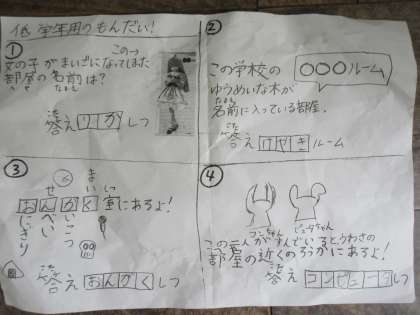 低学年用のもんだい!
①
この→
女の子がまいごになってしまた
部屋の名前は?
へや なまえ
こた
答え りか しつ
②
この学校の 〇〇〇ルーム
ゆうめいな木が
なまえ
名前に入っている部屋。
こた
答え けやき ルーム
③
ま
い
せ
しつ
おんがく室にあるよ!
にぎり
べい
こつ
こた
答え おんがく しつ
④
コンちゃん
ピュータちゃん
この二人がすんでいるとうわさの
部屋の近くのろうかにあるよ!
こた
答え コンピュータ しつ